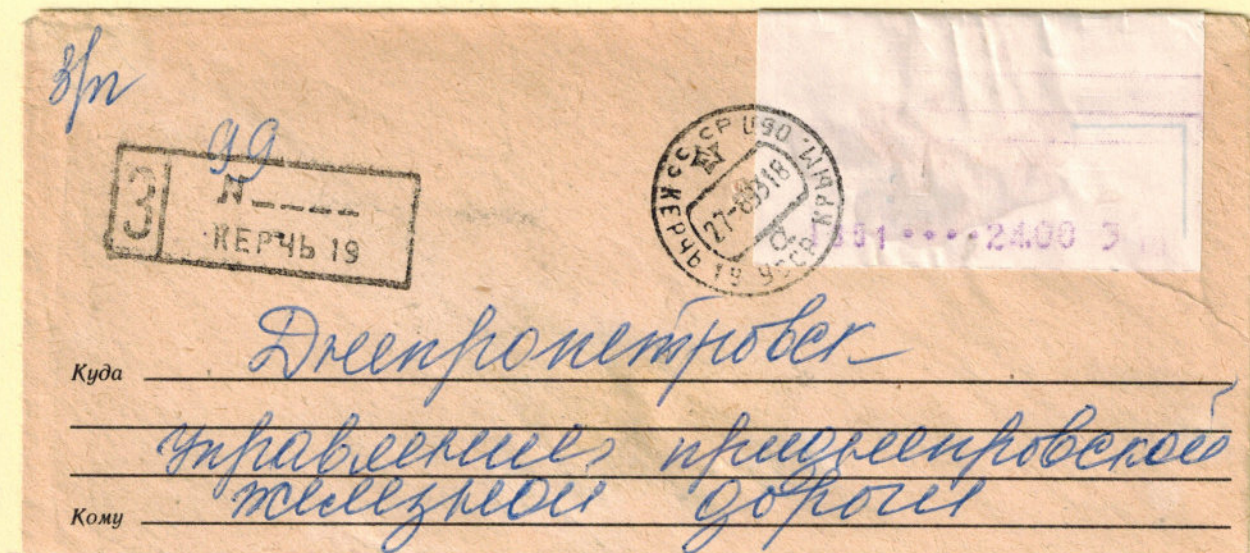 з/п
99
З N----
КЕРЧЬ 19
СССР
КРЫМ. ОБЛ
27-8-93 18
КЕРЧЬ 19 УССР
2400
Куда Днепропетровск
управление приднепровской
Кому железной дороги